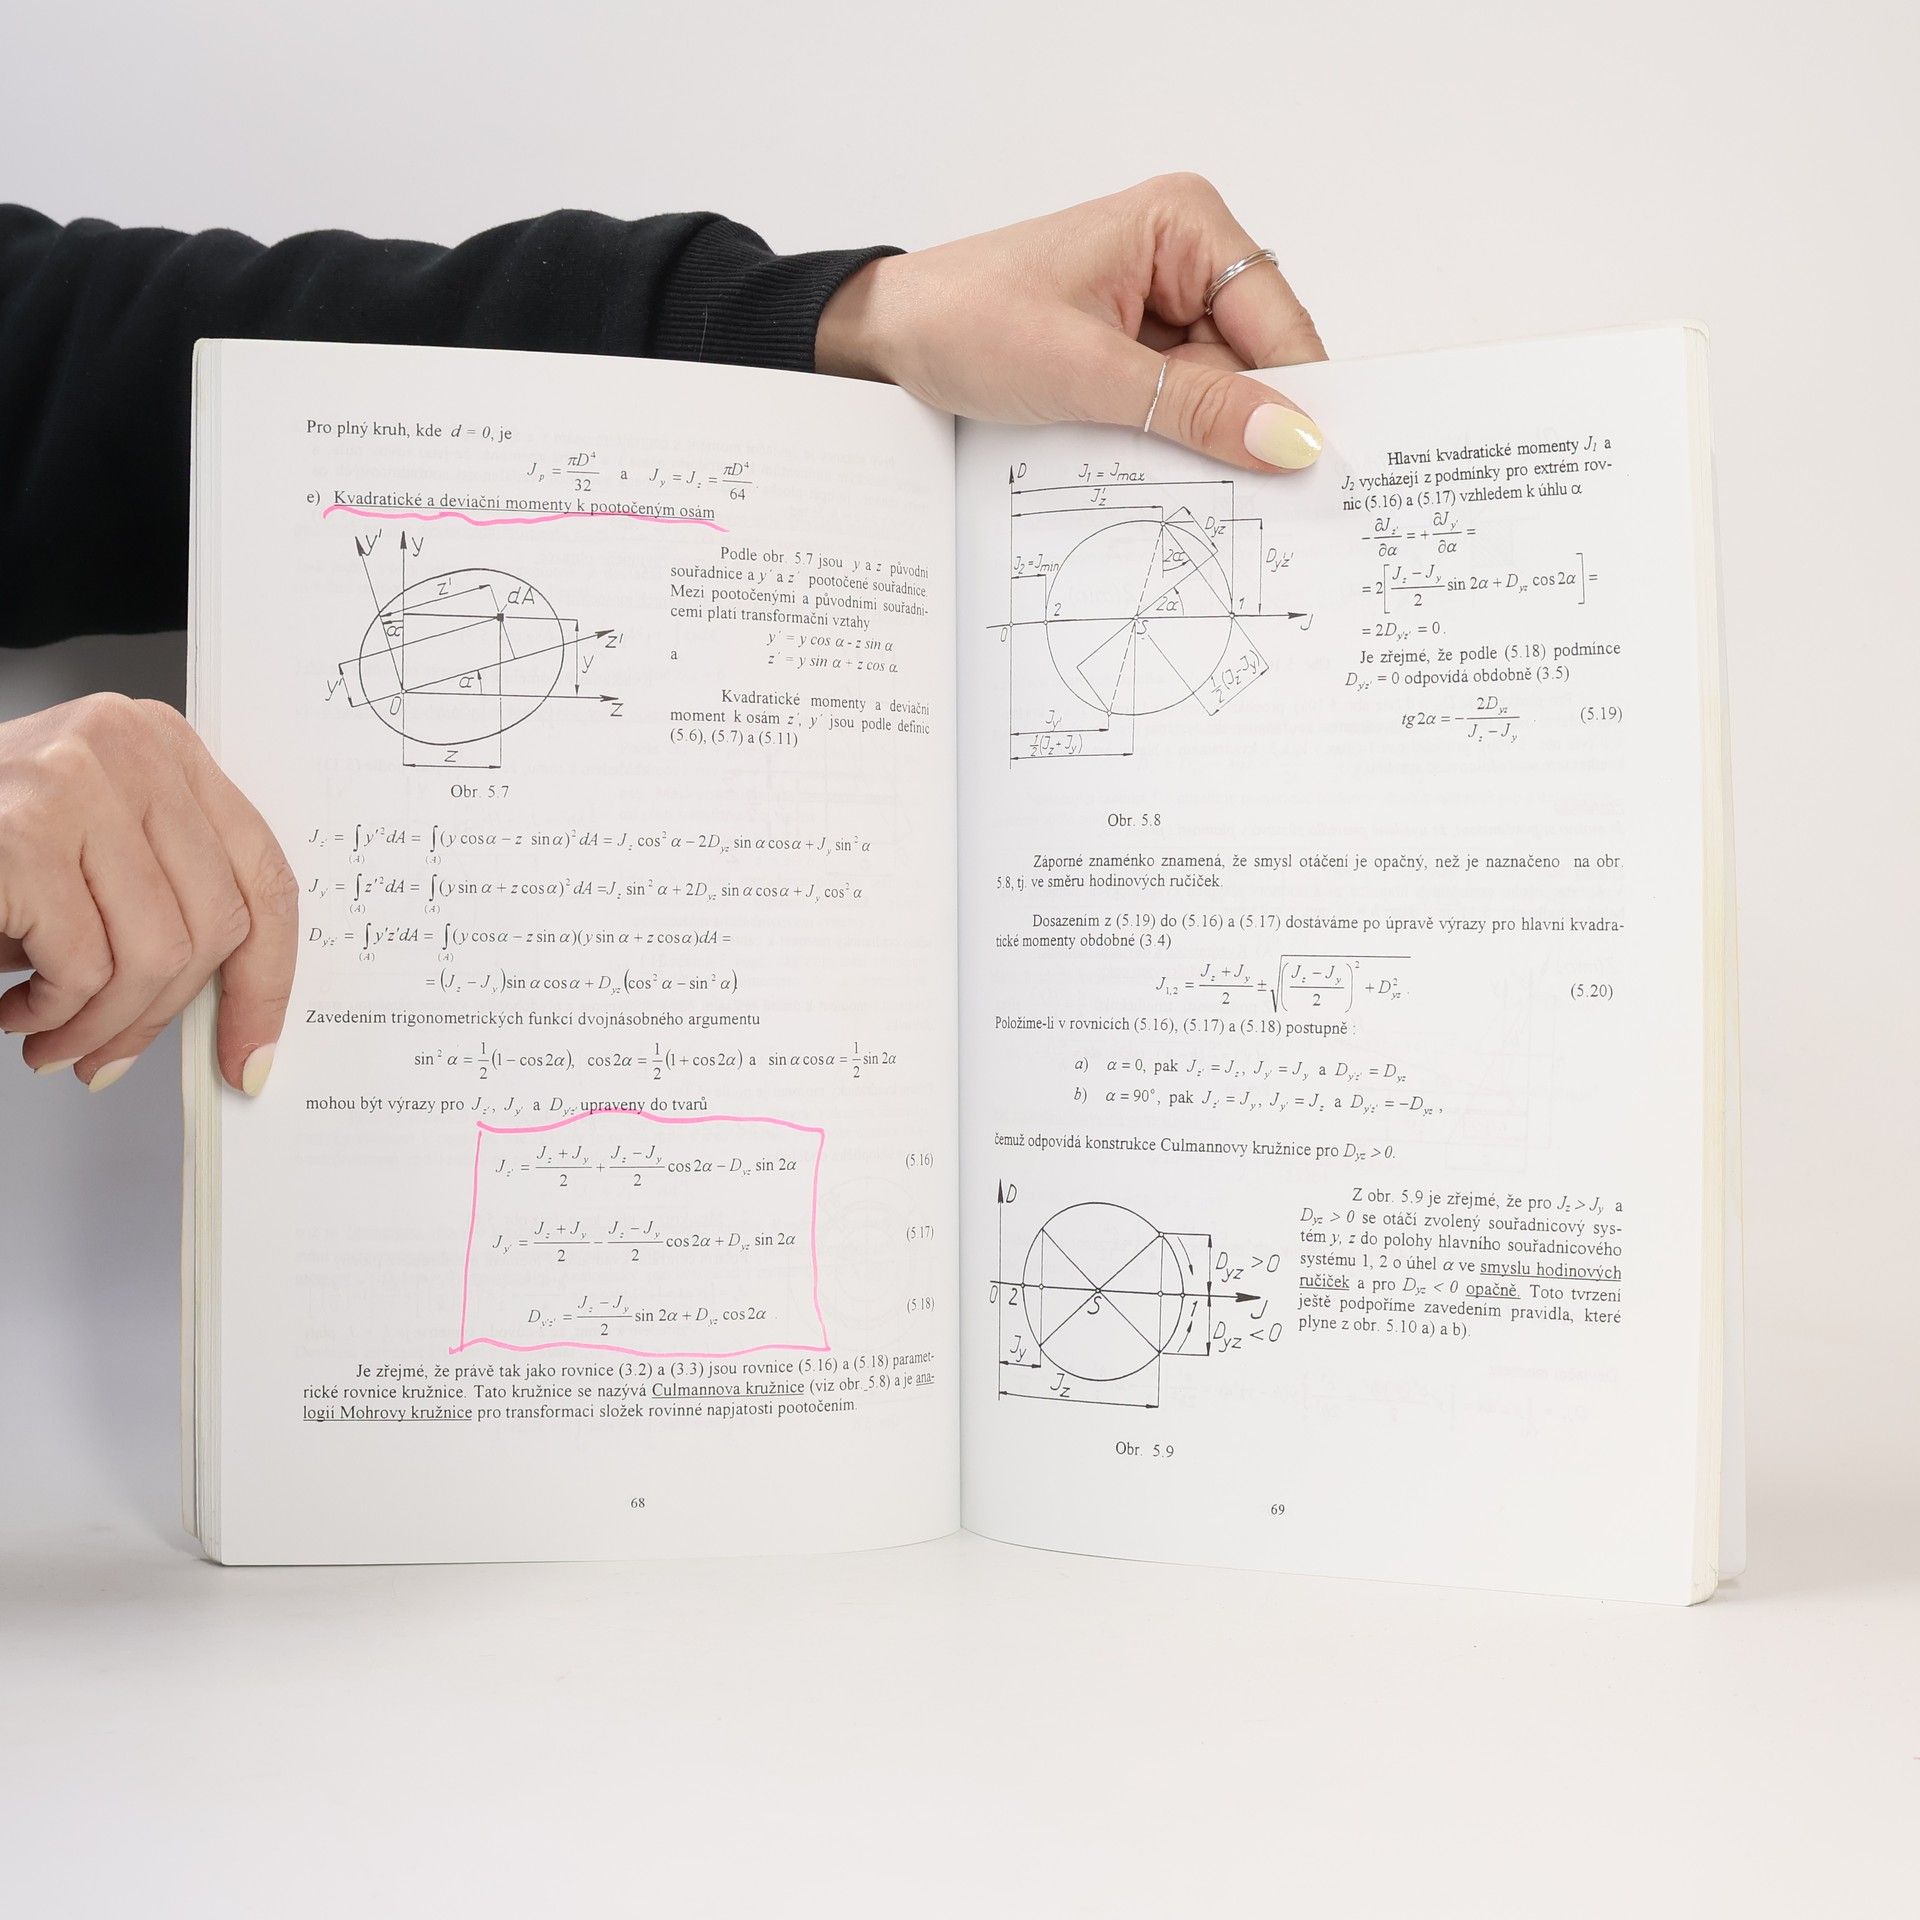 Pro plný kruh, kde d = 0, je
J_p = πD⁴/32 a J_y = J_z = πD⁴/64.
e) Kvadratické a deviační momenty k pootočeným osám
y' y
z' dA
α z'
y
y' α
0 z
z
Obr. 5.7
Podle obr. 5.7 jsou y a z původní
souřadnice a y´ a z´ pootočené souřadnice.
Mezi pootočenými a původními souřadni-
cemi platí transformační vztahy
y´ = y cos α - z sin α
a z´ = y sin α + z cos α.
Kvadratické momenty a deviační
moment k osám z´, y´ jsou podle definic
(5.6), (5.7) a (5.11)
J_z' = ∫(A) y'² dA = ∫(A) (y cosα − z sinα)² dA = J_z cos² α − 2D_yz sin α cosα + J_y sin² α
J_y' = ∫(A) z'² dA = ∫(A) (y sin α + z cosα)² dA = J_z sin² α + 2D_yz sin α cosα + J_y cos² α
D_y'z' = ∫(A) y'z' dA = ∫(A) (y cosα − z sinα)(y sin α + z cosα) dA =
= (J_z − J_y) sin α cosα + D_yz (cos² α − sin² α)
Zavedením trigonometrických funkcí dvojnásobného argumentu
sin² α = 1/2 (1 − cos 2α), cos2α = 1/2 (1 + cos 2α) a sin α cosα = 1/2 sin 2α
mohou být výrazy pro J_z', J_y' a D_y'z' upraveny do tvarů
J_z' = (J_z + J_y)/2 + (J_z − J_y)/2 cos 2α − D_yz sin 2α (5.16)
J_y' = (J_z + J_y)/2 − (J_z − J_y)/2 cos 2α + D_yz sin 2α (5.17)
D_y'z' = (J_z − J_y)/2 sin 2α + D_yz cos 2α. (5.18)
Je zřejmé, že právě tak jako rovnice (3.2) a (3.3) jsou rovnice (5.16) a (5.18) paramet-
rické rovnice kružnice. Tato kružnice se nazývá Culmannova kružnice (viz obr. 5.8) a je ana-
logií Mohrovy kružnice pro transformaci složek rovinné napjatosti pootočením.
68
D J₁ = J_max
J_z'
D_yz
J₂=J_min 2α D_y'z'
2 2α 1
0 S J
1/2(J_z-J_y)
J_y'
1/2(J_z+J_y)
Obr. 5.8
Hlavní kvadratické momenty J₁ a
J₂ vycházejí z podmínky pro extrém rov-
nic (5.16) a (5.17) vzhledem k úhlu α
−∂J_z'/∂α = +∂J_y'/∂α =
= 2[(J_z − J_y)/2 sin 2α + D_yz cos 2α] =
= 2D_y'z' = 0.
Je zřejmé, že podle (5.18) podmínce
D_y'z' = 0 odpovídá obdobně (3.5)
tg2α = −2D_yz/(J_z − J_y). (5.19)
Záporné znaménko znamená, že smysl otáčení je opačný, než je naznačeno na obr.
5.8, tj. ve směru hodinových ručiček.
Dosazením z (5.19) do (5.16) a (5.17) dostáváme po úpravě výrazy pro hlavní kvadra-
tické momenty obdobné (3.4)
J_1,2 = (J_z + J_y)/2 ± √(((J_z − J_y)/2)² + D²_yz). (5.20)
Položíme-li v rovnicích (5.16), (5.17) a (5.18) postupně :
a) α = 0, pak J_z' = J_z, J_y' = J_y a D_y'z' = D_yz
b) α = 90°, pak J_z' = J_y, J_y' = J_z a D_y'z' = −D_yz ,
čemuž odpovídá konstrukce Culmannovy kružnice pro D_yz > 0.
D
D_yz >0
0 2 S 1 J
D_yz <0
J_y
J_z
Obr. 5.9
Z obr. 5.9 je zřejmé, že pro J_z > J_y a
D_yz > 0 se otáčí zvolený souřadnicový sys-
tém y, z do polohy hlavního souřadnicového
systému 1, 2 o úhel α ve smyslu hodinových
ručiček a pro D_yz < 0 opačně. Toto tvrzení
ještě podpoříme zavedením pravidla, které
plyne z obr. 5.10 a) a b).
69